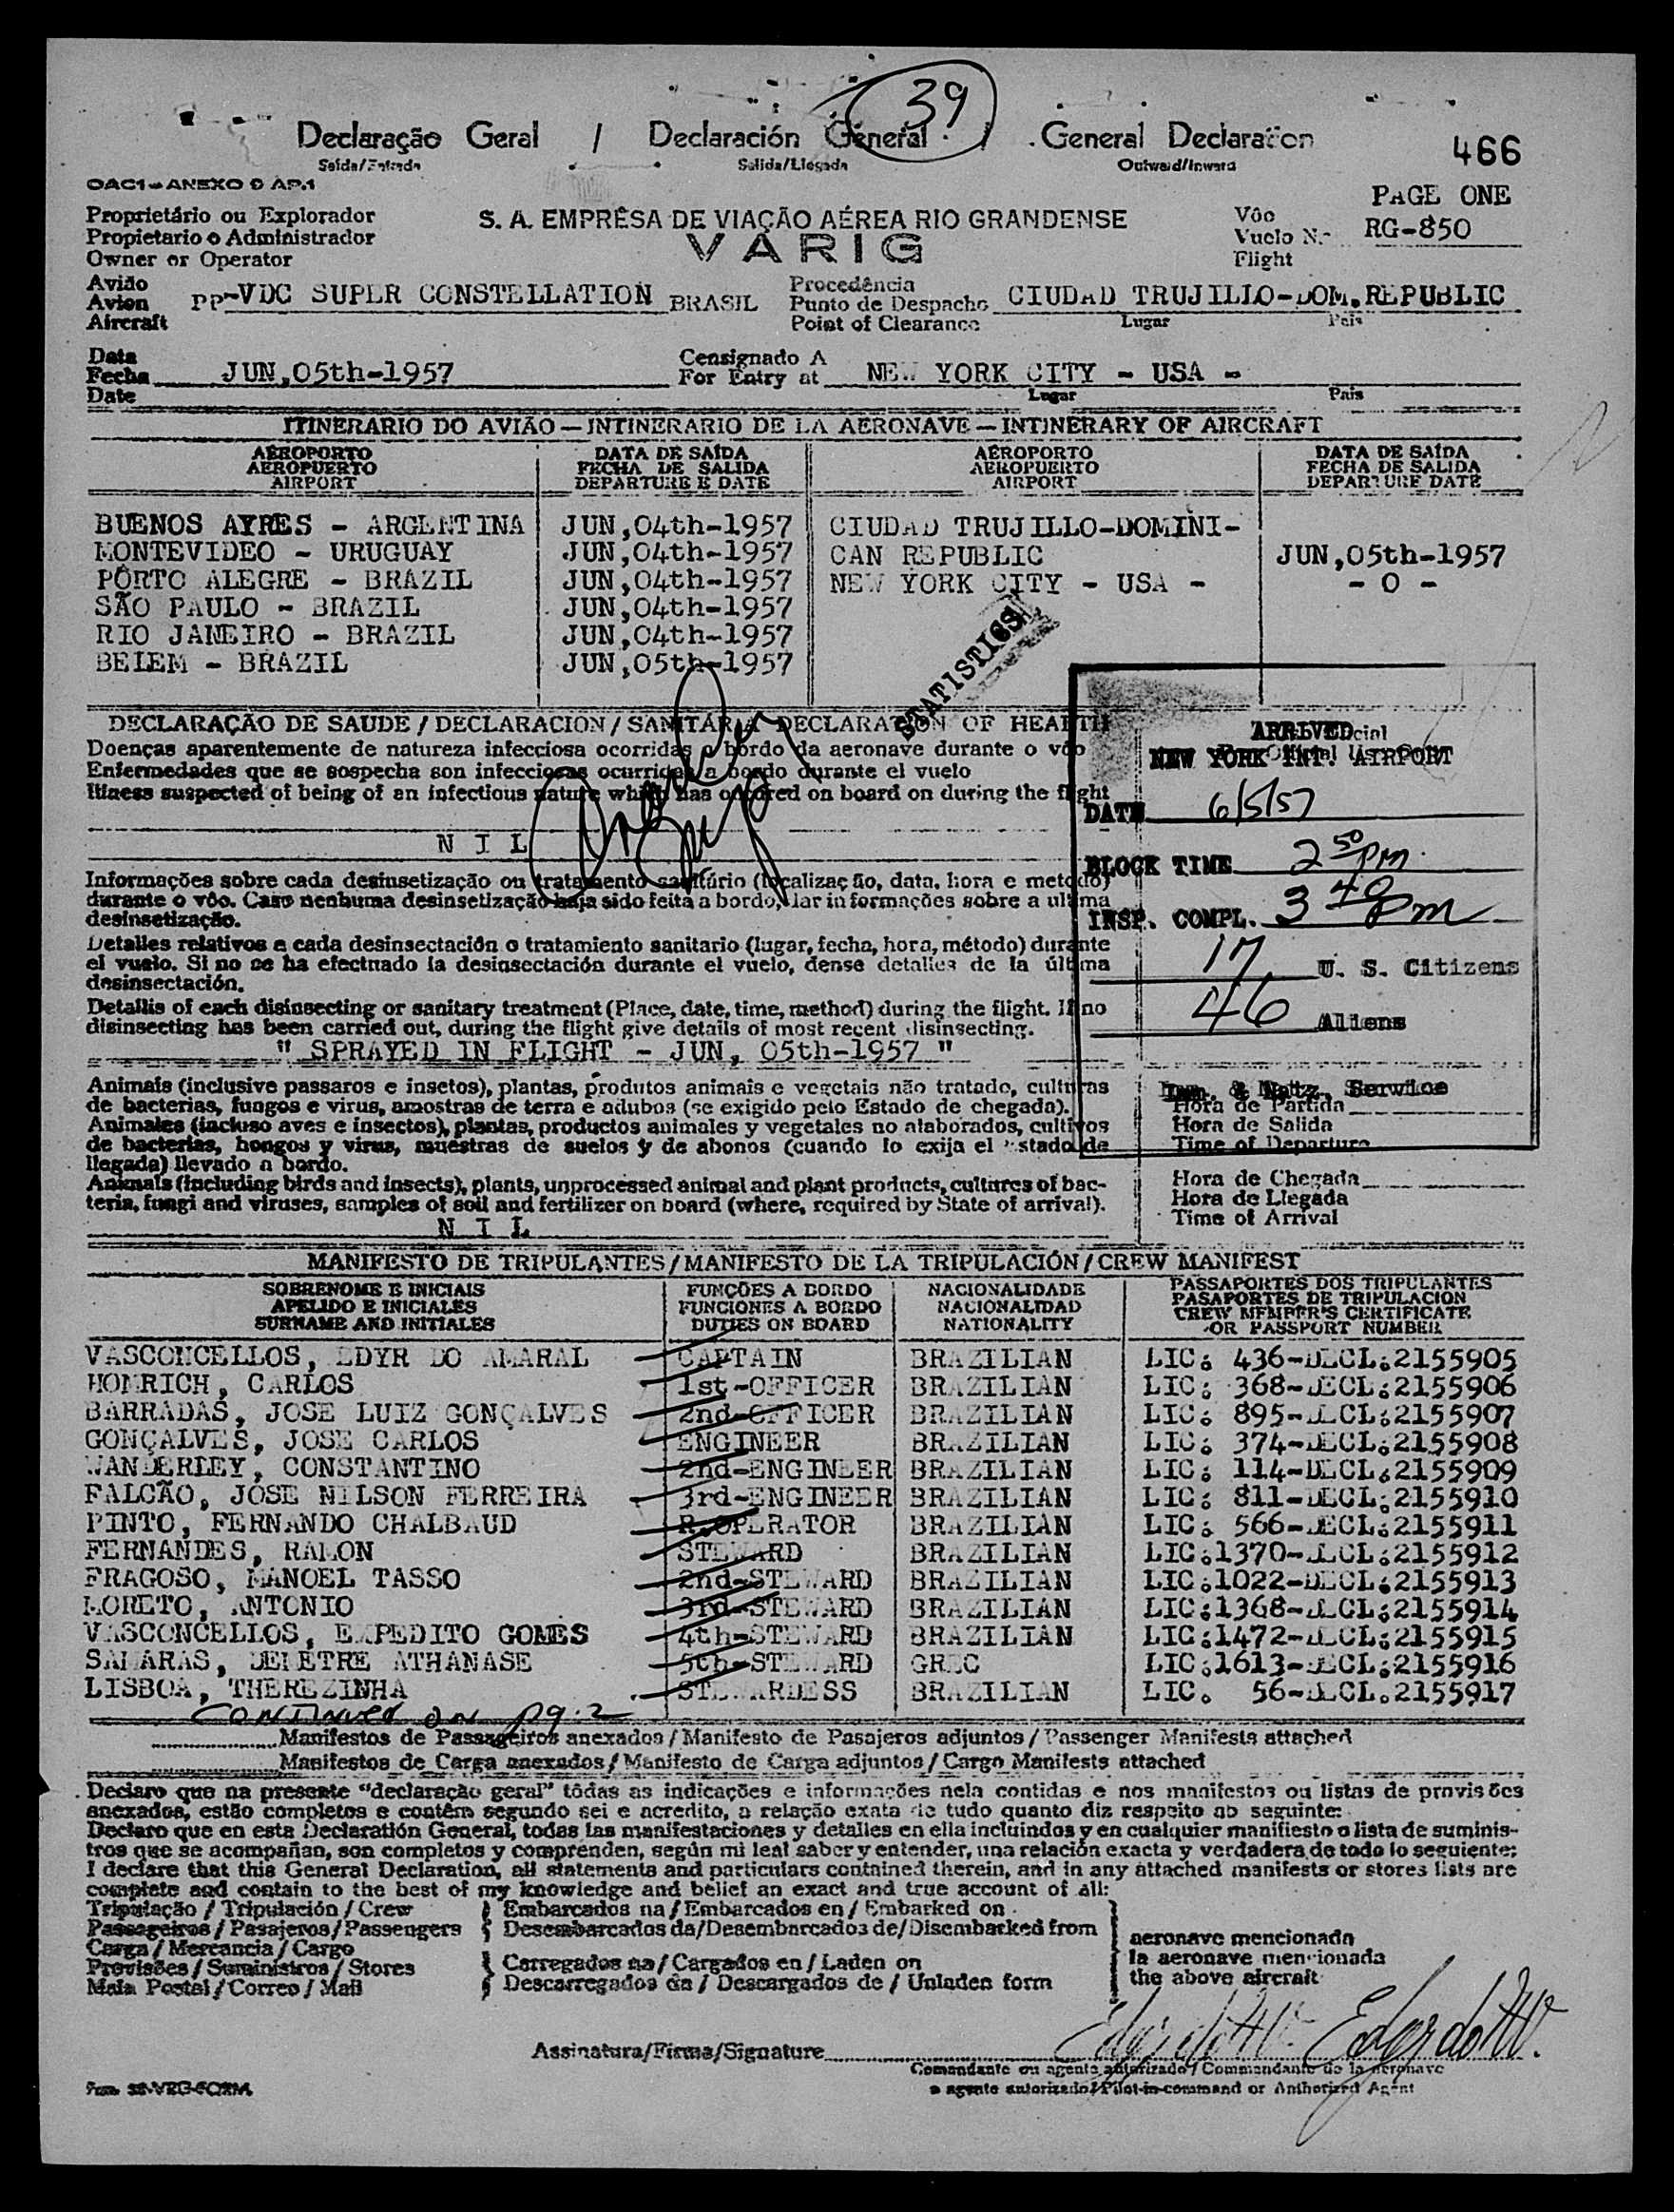 39
Declaração Geral / Declaración General / General Declaration
Saída/Entrada Salida/Llegada Outward/Inward
466
OACI - ANEXO 9 AP.1
PAGE ONE
Proprietário ou Explorador
Propietario o Administrador
Owner or Operator
S. A. EMPRÊSA DE VIAÇÃO AÉREA RIO GRANDENSE
VARIG
Vôo
Vuelo N.º RG-850
Flight
Avião
Avion PP-VDC SUPER CONSTELLATION BRASIL
Aircraft
Procedência
Punto de Despacho CIUDAD TRUJILLO-DOM.REPUBLIC
Point of Clearance Lugar País
Data
Fecha JUN,05th-1957
Date
Consignado A
For Entry at NEW YORK CITY - USA -
Lugar País
ITINERARIO DO AVIÃO — INTINERARIO DE LA AERONAVE — INTINERARY OF AIRCRAFT
AEROPORTO DATA DE SAÍDA AEROPORTO DATA DE SAÍDA
AEROPUERTO FECHA DE SALIDA AEROPUERTO FECHA DE SALIDA
AIRPORT DEPARTURE E DATE AIRPORT DEPARTURE DATE
BUENOS AYRES - ARGENTINA JUN,04th-1957 CIUDAD TRUJILLO-DOMINI-
MONTEVIDEO - URUGUAY JUN,04th-1957 CAN REPUBLIC JUN,05th-1957
PÔRTO ALEGRE - BRAZIL JUN,04th-1957 NEW YORK CITY - USA - - 0 -
SÃO PAULO - BRAZIL JUN,04th-1957
RIO JANEIRO - BRAZIL JUN,04th-1957
BELEM - BRAZIL JUN,05th-1957
STATISTICS
DECLARAÇÃO DE SAUDE / DECLARACION / SANITARIA DECLARATION OF HEALTH
Doenças aparentemente de natureza infecciosa ocorridas a bordo da aeronave durante o vôo
Enfermedades que se sospecha son infecciosas ocurridas a bordo durante el vuelo
Illness suspected of being of an infectious nature which has occored on board on during the flight
N I L
Informações sobre cada desinsetização ou tratamento sanitário (localização, data, hora e metodo)
durante o vôo. Caso nenhuma desinsetização haja sido feita a bordo, dar informações sobre a ultima
desinsetização.
Detalles relativos a cada desinsectación o tratamiento sanitario (lugar, fecha, hora, método) durante
el vuelo. Si no se ha efectuado la desinsectación durante el vuelo, dense detalles de la última
desinsectación.
Detallis of each disinsecting or sanitary treatment (Place, date, time, method) during the flight. If no
disinsecting has been carried out, during the flight give details of most recent disinsecting.
" SPRAYED IN FLIGHT - JUN, 05th-1957 "
Animais (inclusive passaros e insetos), plantas, produtos animais e vegetais não tratado, culturas
de bacterias, fungos e virus, amostras de terra e adubos (se exigido pelo Estado de chegada).
Animales (incluso aves e insectos), plantas, productos animales y vegetales no alaborados, cultivos
de bacterias, hongos y virus, muestras de suelos y de abonos (cuando lo exija el Estado de
llegada) llevado a bordo.
Animals (including birds and insects), plants, unprocessed animal and plant products, cultures of bac-
teria, fungi and viruses, samples of soil and fertilizer on board (where, required by State of arrival).
N I L
ARRIVED
NEW YORK INT. AIRPORT
DATE 6/5/57
BLOCK TIME 2 50 pm
INSP. COMPL. 3 40 pm
17 U. S. Citizens
46 Aliens
Imm. & Natz. Service
Hora de Partida
Hora de Salida
Time of Departure
Hora de Chegada
Hora de Llegada
Time of Arrival
MANIFESTO DE TRIPULANTES / MANIFESTO DE LA TRIPULACIÓN / CREW MANIFEST
SOBRENOME E INICIAIS FUNÇÕES A BORDO NACIONALIDADE PASSAPORTES DOS TRIPULANTES
APELIDO E INICIALES FUNCIONES A BORDO NACIONALIDAD PASAPORTES DE TRIPULACION
SURNAME AND INITIALES DUTIES ON BOARD NATIONALITY CREW MEMBER'S CERTIFICATE
OR PASSPORT NUMBER
VASCONCELLOS, EDYR DO AMARAL CAPTAIN BRAZILIAN LIC: 436-DECL:2155905
HOMRICH, CARLOS 1st-OFFICER BRAZILIAN LIC: 368-DECL:2155906
BARRADAS, JOSE LUIZ GONÇALVES 2nd-OFFICER BRAZILIAN LIC: 895-DECL:2155907
GONÇALVES, JOSE CARLOS ENGINEER BRAZILIAN LIC: 374-DECL:2155908
WANDERLEY, CONSTANTINO 2nd-ENGINEER BRAZILIAN LIC: 114-DECL:2155909
FALCÃO, JOSE NILSON FERREIRA 3rd-ENGINEER BRAZILIAN LIC: 811-DECL:2155910
PINTO, FERNANDO CHALBAUD R.OPERATOR BRAZILIAN LIC: 566-DECL:2155911
FERNANDES, RAMON STEWARD BRAZILIAN LIC:1370-DECL:2155912
FRAGOSO, MANOEL TASSO 2nd-STEWARD BRAZILIAN LIC:1022-DECL:2155913
MORETO, ANTONIO 3rd-STEWARD BRAZILIAN LIC:1368-DECL:2155914
VASCONCELLOS, EXPEDITO GOMES 4th-STEWARD BRAZILIAN LIC:1472-DECL:2155915
SAMARAS, DEMETRE ATHANASE 5th-STEWARD GREC LIC:1613-DECL:2155916
LISBOA, THEREZINHA STEWARDESS BRAZILIAN LIC. 56-DECL.2155917
Continued on pg. 2
Manifestos de Passageiros anexados / Manifesto de Pasajeros adjuntos / Passenger Manifests attached
Manifestos de Carga anexados / Manifesto de Carga adjuntos / Cargo Manifests attached
Declaro que na presente "declaração geral" tôdas as indicações e informações nela contidas e nos manifestos ou listas de provisões
anexados, estão completos e contêm segundo sei e acredito, a relação exata de tudo quanto diz respeito ao seguinte:
Declaro que en esta Declaratión General, todas las manifestaciones y detalles en ella incluindos y en cualquier manifiesto o lista de suminis-
tros que se acompañan, son completos y comprenden, según mi leal saber y entender, una relación exacta y verdadera de todo lo seguiente:
I declare that this General Declaration, all statements and particulars contained therein, and in any attached manifests or stores lists are
complete and contain to the best of my knowledge and belief an exact and true account of all:
Tripulação / Tripulación / Crew Embarcados na / Embarcados en / Embarked on
Passageiros / Pasajeros / Passengers Desembarcados da / Desembarcados de / Disembarked from
Carga / Mercancia / Cargo
Provisões / Suministros / Stores Carregados na / Cargados en / Laden on
Mala Postal / Correo / Mail Descarregados da / Descargados de / Unladen form
aeronave mencionada
la aeronave mencionada
the above aircraft
Assinatura/Firma/Signature
Comandante ou agente autorizado / Commandante de la aeronave
o agente autorizado / Pilot-in-command or Anthorized Agent